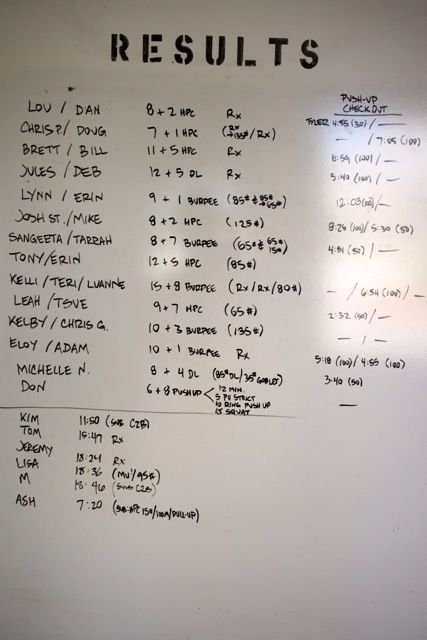 RESULTS
PUSH-UP
CHECK OUT
LOU / DAN 8 + 2 HPC Rx TYLER 4:55 (30) / —
CHRIS P. / DOUG 7 + 1 HPC (Rx → 135# / Rx) — / 7:05 (100)
BRETT / BILL 11 + 5 HPC Rx 6:59 (100) / —
JULES / DEB 12 + 5 DL Rx 5:40 (100) / —
LYNN / ERIN 9 + 1 BURPEE (85# & 85# → 65#) 12:03 (100) / —
JOSH ST. / MIKE 8 + 2 HPC (125#) 8:25 (100) / 5:30 (50)
SANGEETA / TARRAH 8 + 7 BURPEE (65# & 65# 15#) 4:51 (50) / —
TONY / ERIN 12 + 5 HPC (85#)
KELLI / TERI / LUANNE 15 + 8 BURPEE (Rx / Rx / 80#) — / 6:54 (100) / —
LEAH / TSVE 9 + 7 HPC (65#) 2:32 (50) / —
KELBY / CHRIS G. 10 + 3 BURPEE (135#) — / —
ELOY / ADAM 10 + 1 BURPEE Rx 5:18 (100) / 4:55 (100)
MICHELLE N. 8 + 4 DL (85# DL / 35# GOBLET) 3:40 (50)
DON 6 + 8 PUSHUP 12 MIN. —
5 PU STRICT
10 RING PUSH UP
15 SQUAT
KIM 11:50 (SUB C2B)
TOM 15:47 Rx
JEREMY 18:24 Rx
LISA 18:36 (MU / 95#)
M 18:46 (SUB C2B)
ASH 7:20 (SUB: HPC 15# / 100M / PULL-UP)